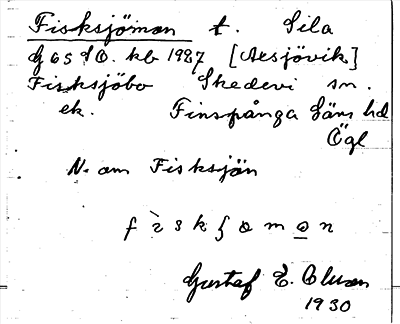 Fisksjömon t. Sila
G 65 SO. kb 1927 [Aesjövik]
Fisksjöbo Skedevi sn.
ek. Finspånga Läns hd
Ögl
N. om Fisksjön
Gustaf E.
1930